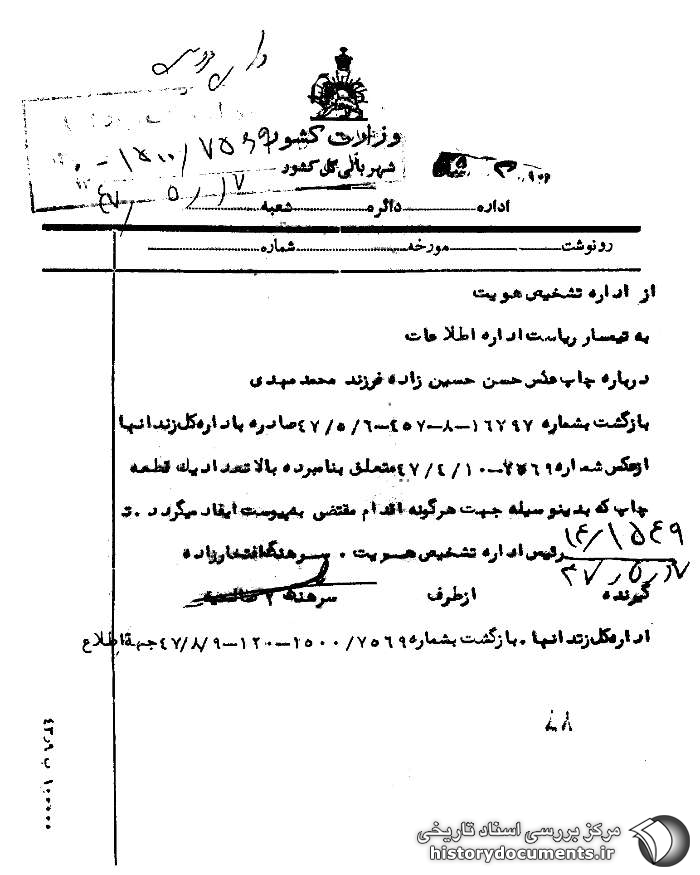 وزارت کشور
شهربانی کل کشور
اداره دائره شعبه
رونوشت مورخه شماره
از اداره تشخیص هویت
به تیمسار ریاست اداره اطلاعات
درباره چاپ عکس حسن حسین زاده فرزند محمد مهدی
بازگشت بشماره ۱۶۷۹۷-۸-۴۵۷-۴۷/۵/۶ صادره باداره کل زندانها
ازعکس شماره ۴۷/۴/۱۰ متعلق بنامبرده بالا تعداد یك قطعه
چاپ که بدینوسیله جهت هرگونه اقدام مقتضی به پیوست ایفاد میگردد.
۱۴/۱۵۴۹
رئیس اداره تشخیص هویت. سرهنگ افتخارزاده
گیرنده ازطرف سرهنگ ۲
اداره کل زندانها. بازگشت بشماره ۷۵۶۹/۲۵۰۰-۱۲۰-۴۷/۸/۹ جهة اطلاع
مرکز بررسی اسناد تاریخی
historydocuments.ir